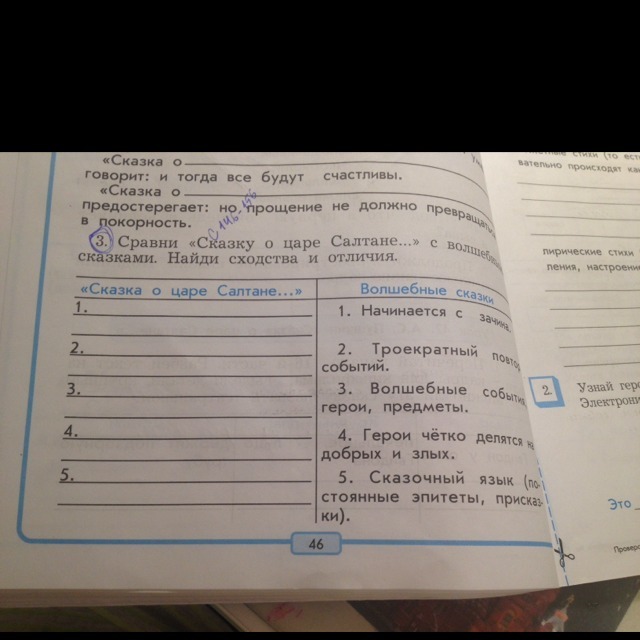 «Сказка о
говорит: и тогда все будут счастливы.
«Сказка о
предостерегает: но прощение не должно превращаться
в покорность.
с 146-156
3. Сравни «Сказку о царе Салтане...» с волшебными
сказками. Найди сходства и отличия.
«Сказка о царе Салтане...»
1.
2.
3.
4.
5.
Волшебные сказки
1. Начинается с зачина.
2. Троекратный повтор
событий.
3. Волшебные события,
герои, предметы.
4. Герои чётко делятся на
добрых и злых.
5. Сказочный язык (по-
стоянные эпитеты, присказ-
ки).
46
стихи (то есть
вательно происходят
лирические стихи
ления, настроени
2. Узнай геро
Электрони
Это
Провер